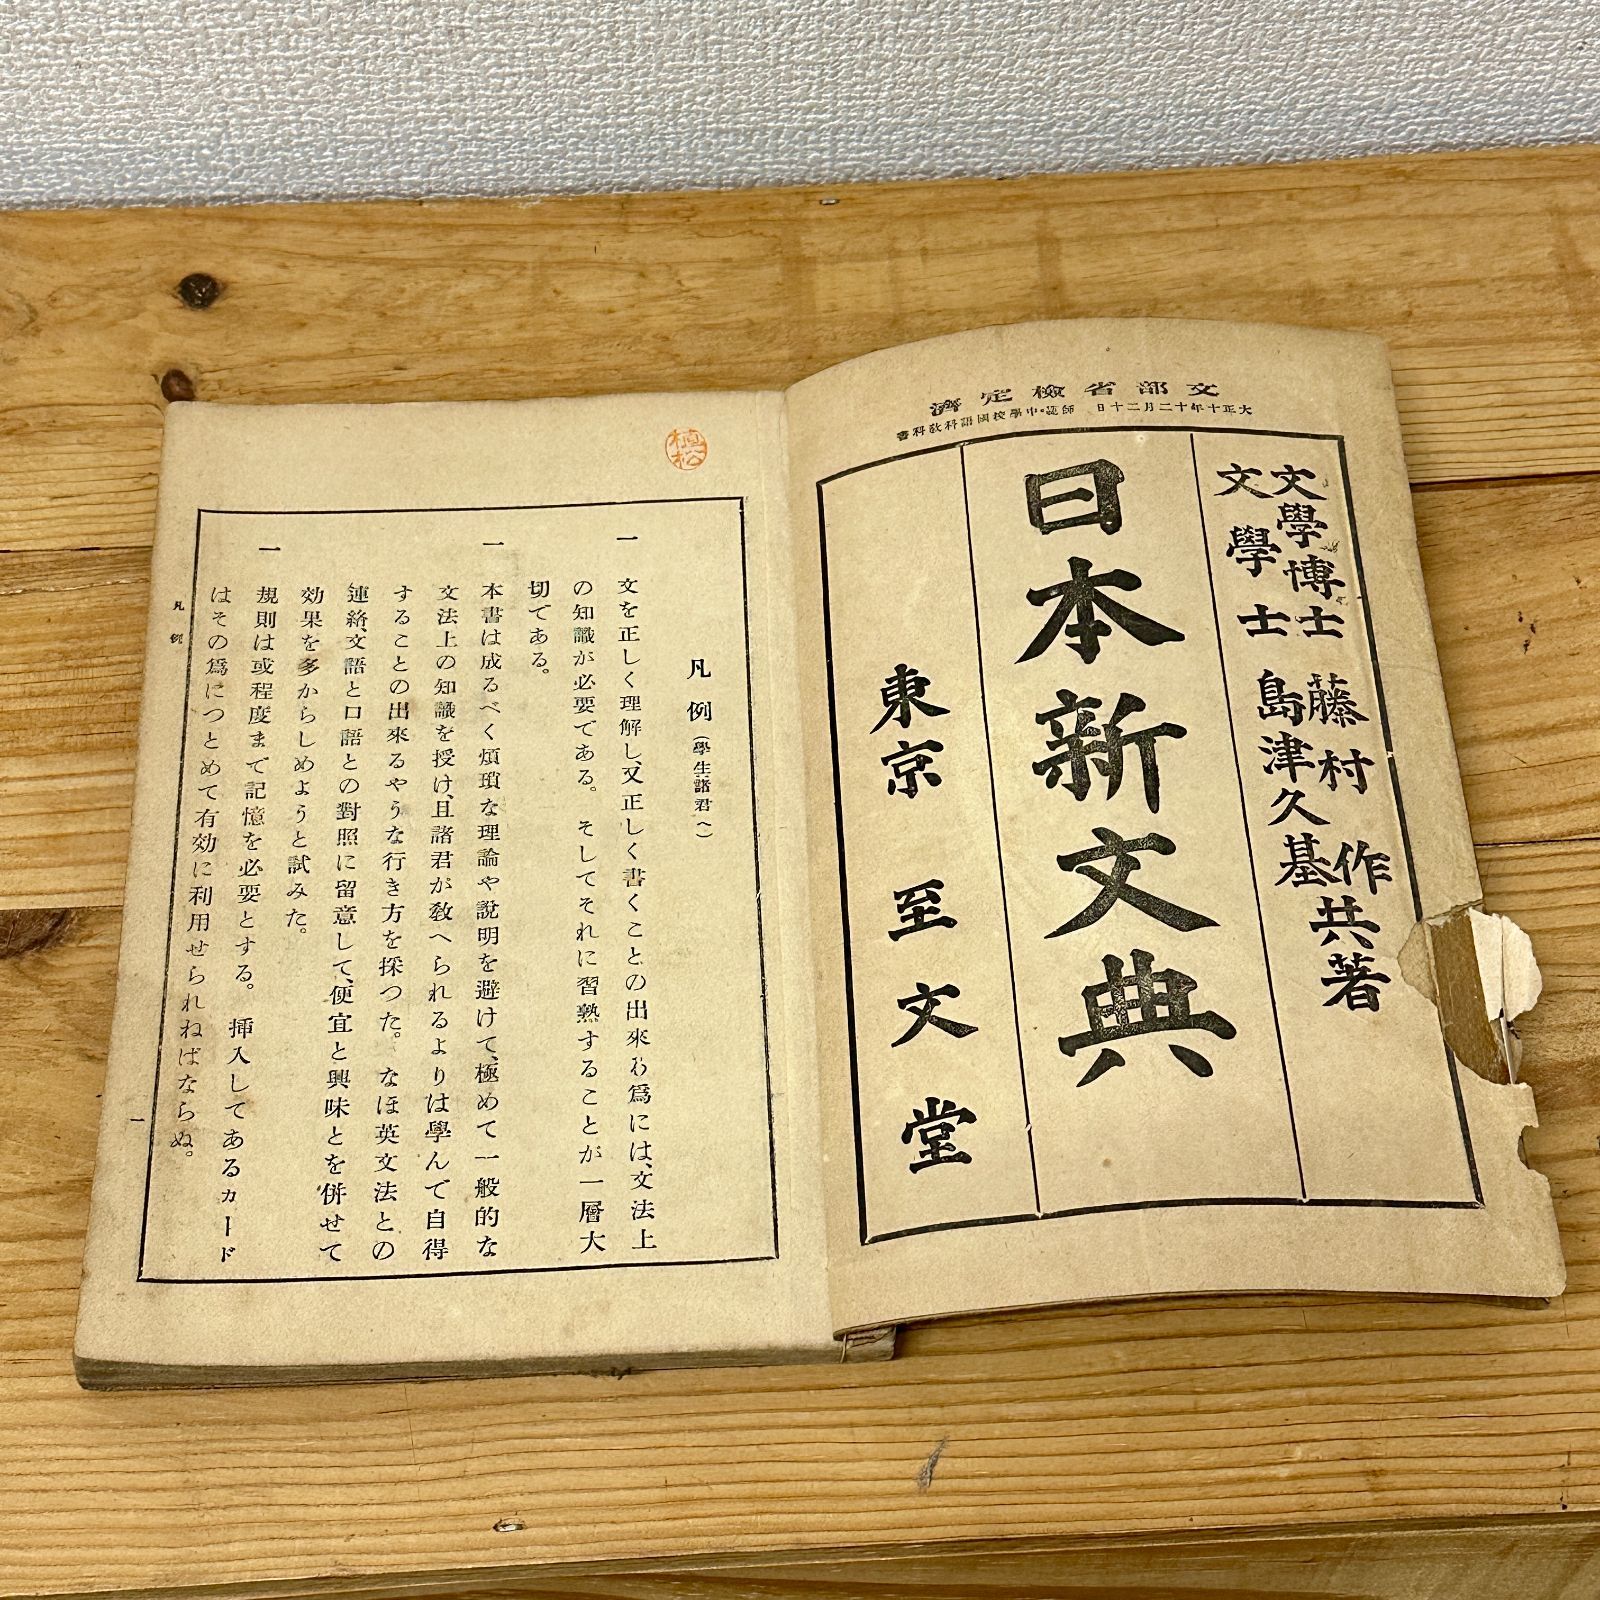 文部省檢定濟
大正十年十二月二十日 師範・中學校國語科敎科書
文學博士 藤村作共著
文學士 島津久基
日本新文典
東京 至文堂
植松
凡例（學生諸君へ）
一 文を正しく理解し、又正しく書くことの出來る爲には、文法上
の知識が必要である。そしてそれに習熟することが一層大
切である。
一 本書は成るべく煩瑣な理論や說明を避けて、極めて一般的な
文法上の知識を授け、且諸君が敎へられるよりは學んで自得
することの出來るやうな行き方を採つた。なほ英文法との
連絡、文語と口語との對照に留意して、便宜と興味とを併せて
効果を多からしめようと試みた。
一 規則は或程度まで記憶を必要とする。挿入してあるカード
はその爲につとめて有効に利用せられねばならぬ。
凡例
一